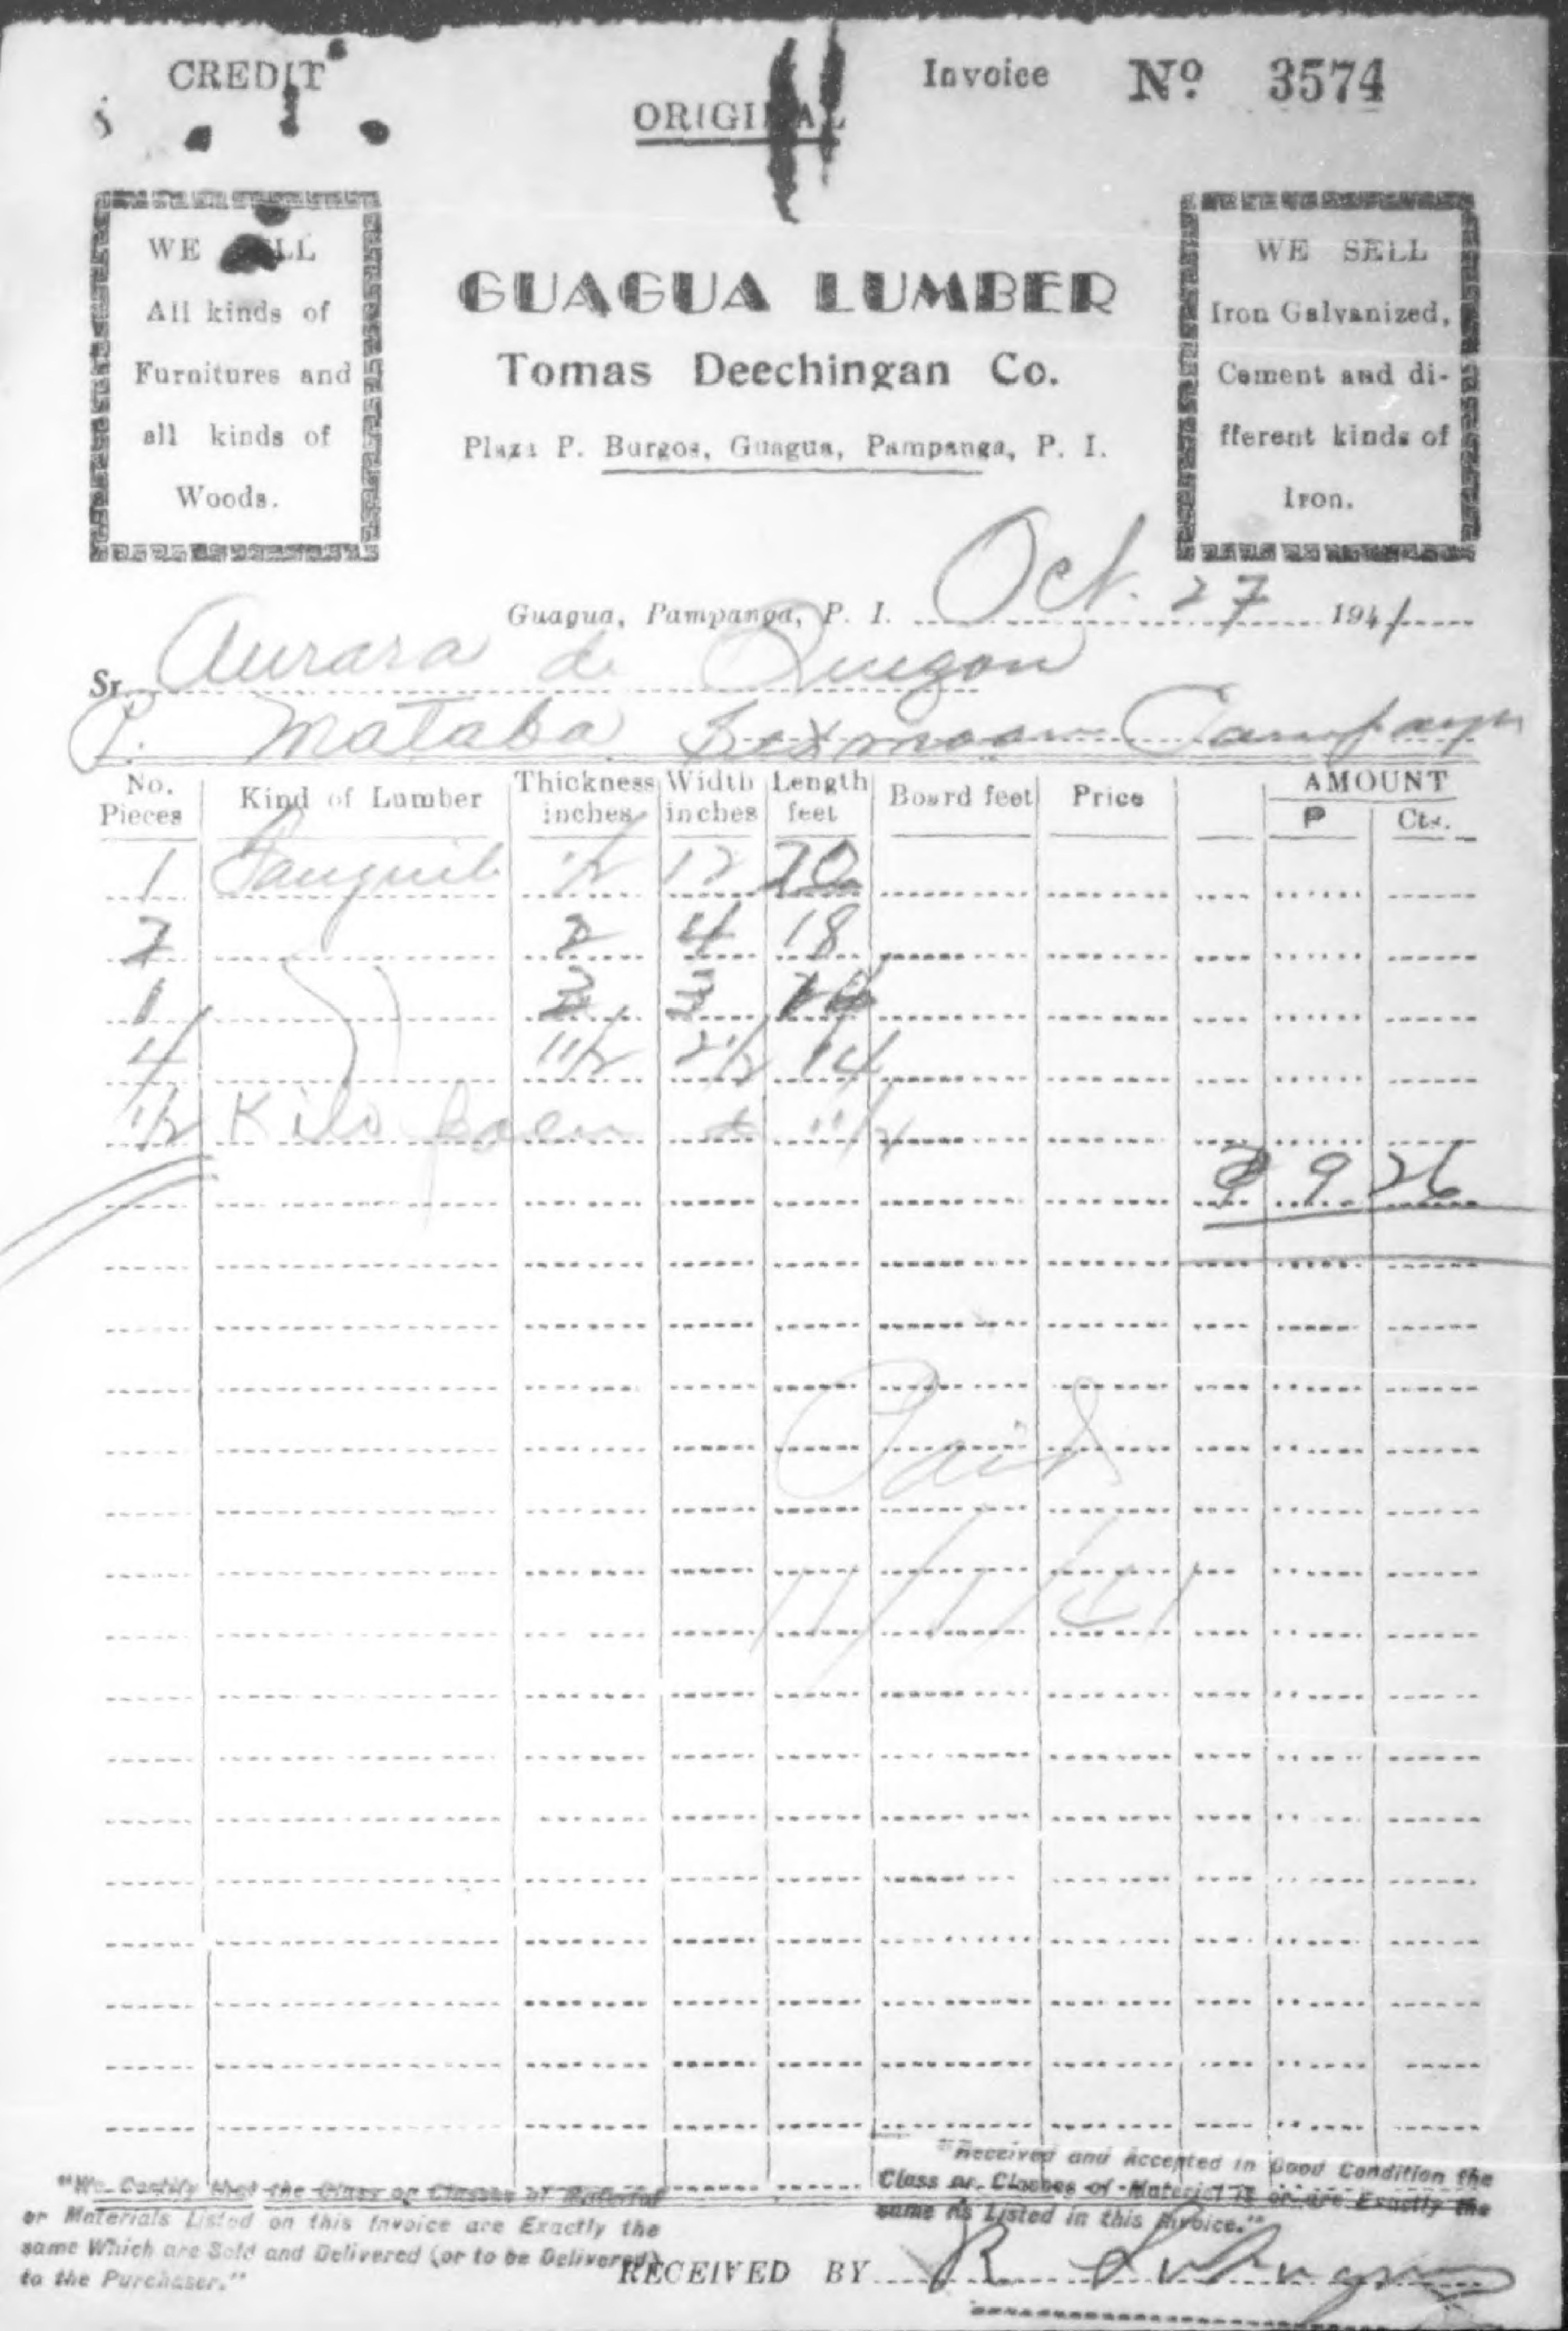 CREDIT
ORIGINAL
Invoice Nº 3574
WE SELL
All kinds of
Furnitures and
all kinds of
Woods.
GUAGUA LUMBER
Tomas Deechingan Co.
Plaza P. Burgos, Guagua, Pampanga, P. I.
WE SELL
Iron Galvanized,
Cement and di-
fferent kinds of
Iron.
Guagua, Pampanga, P. I. Oct. 27 1941
Sr. Aurara de Quezon
Mataba
No. Pieces Kind of Lumber Thickness inches Width inches Length feet Board feet Price AMOUNT ₱ Cts.
1 Tanguili 1/2 12 20
2 2 4 18
1 3 3
4 1 1/2 2 1/2 14
1/2 Kilo
₱ 9 26
Paid
11/1/41
"We Certify that the Class or Classes of Material
or Materials Listed on this Invoice are Exactly the
same Which are Sold and Delivered (or to be Delivered)
to the Purchaser."
"Received and Accepted in Good Condition the
Class or Classes of Material is or are Exactly the
same As Listed in this Invoice."
RECEIVED BY R